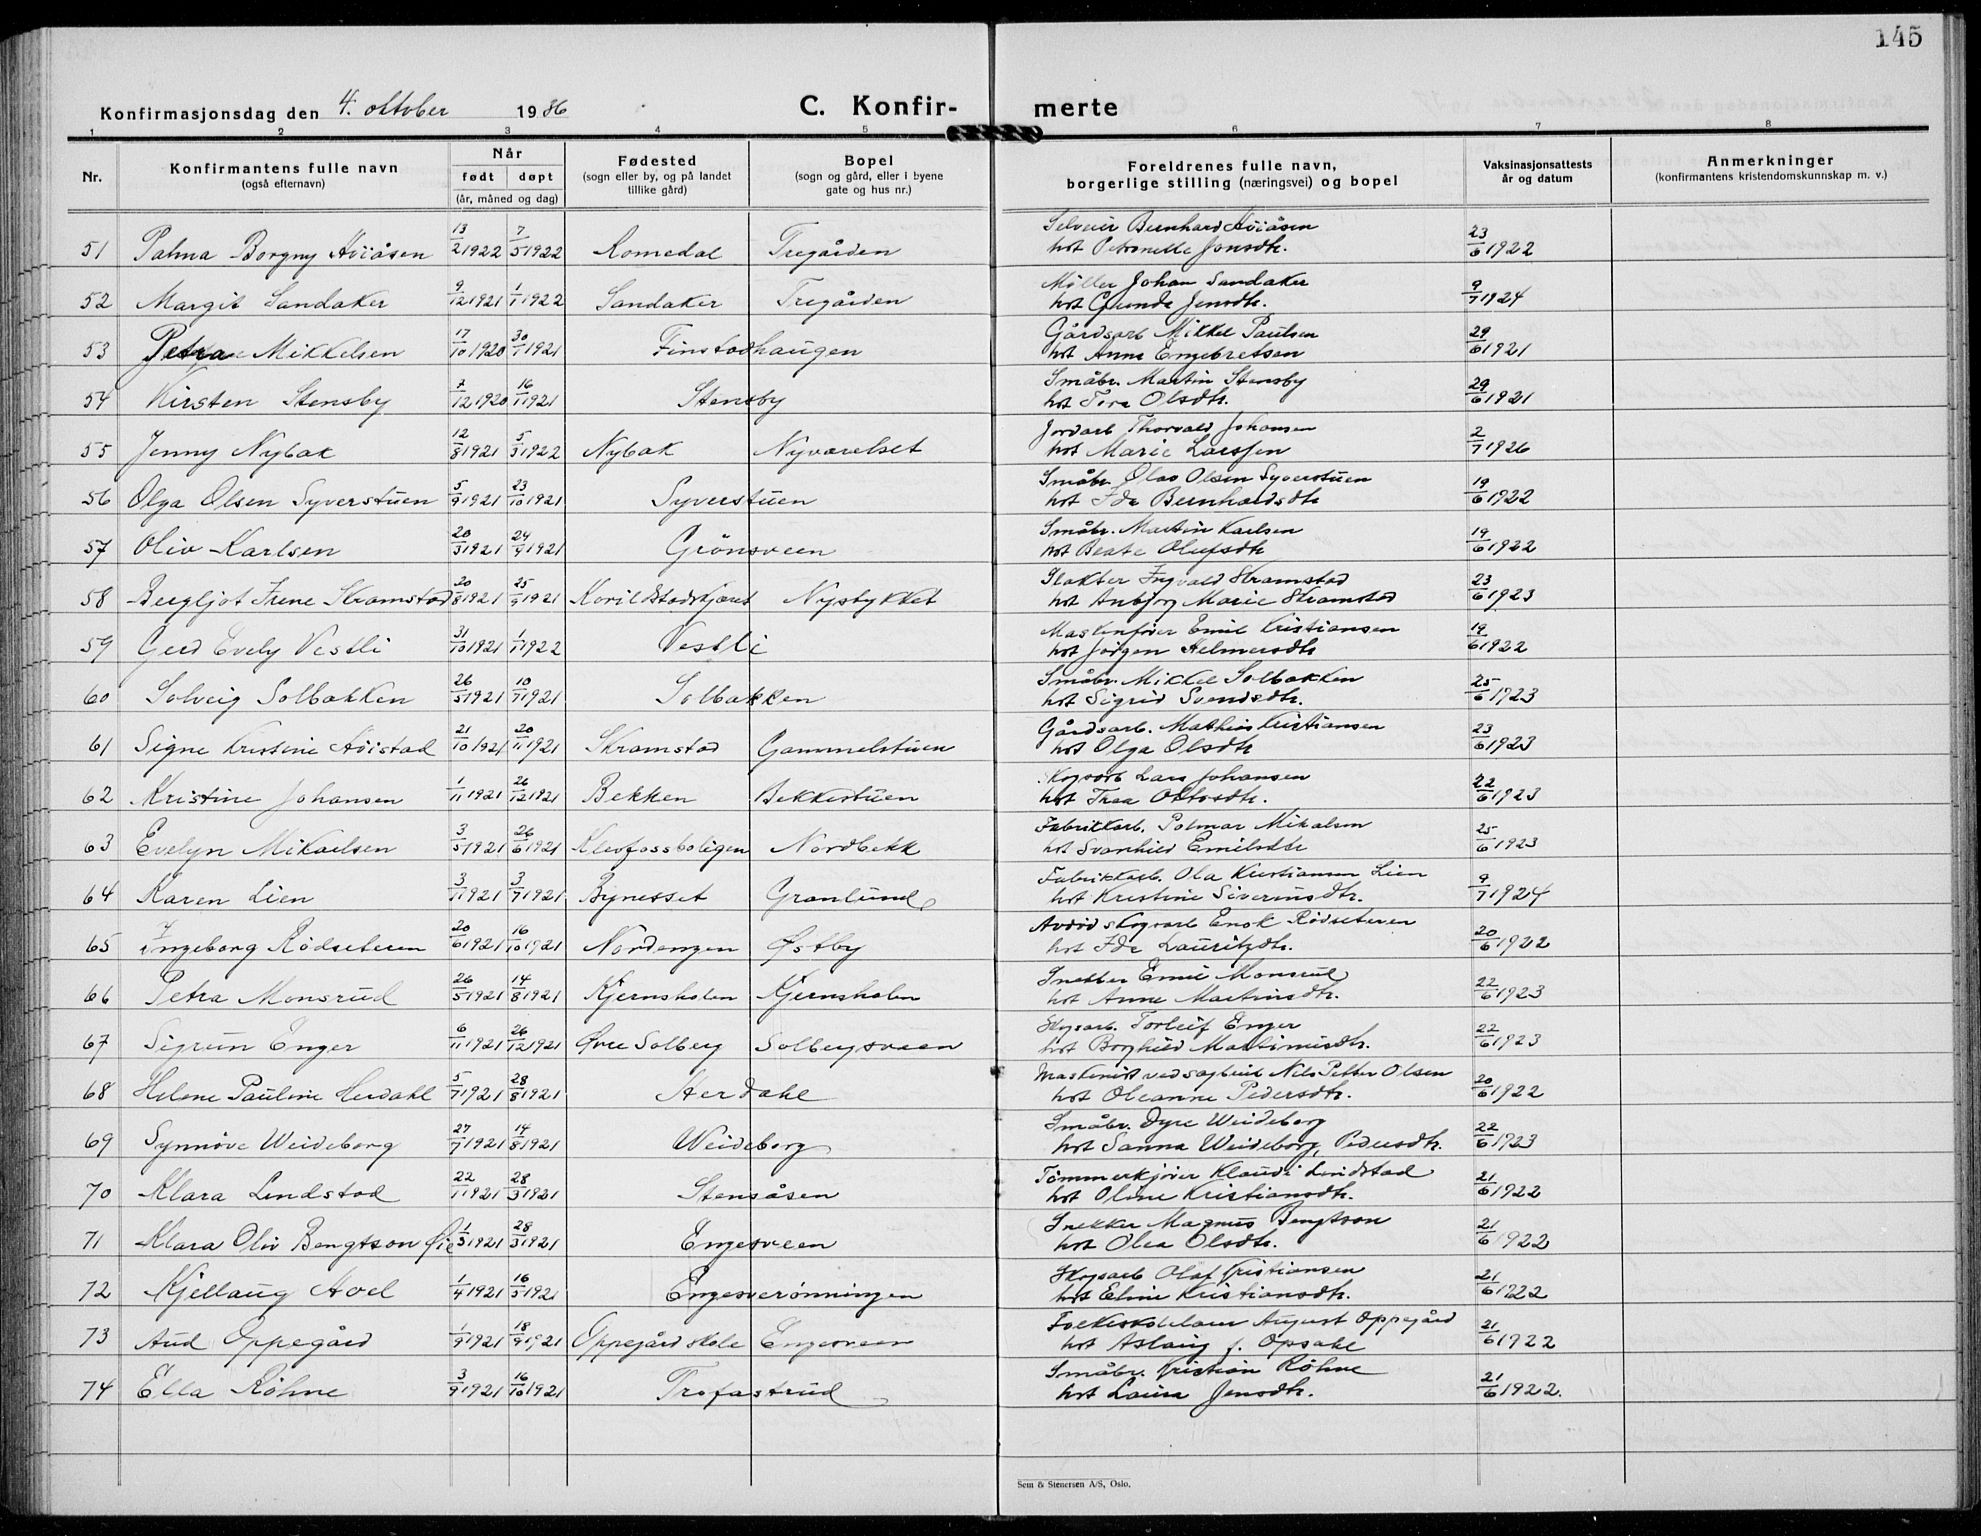 145
Konfirmasjonsdag den 4. oktober 1936 C. Konfir- merte
1 2 3 4 5 6 7 8
Nr. Konfirmantens fulle navn (også efternavn) Når født døpt (år, måned og dag) Fødested (sogn eller by, og på landet tillike gård) Bopel (sogn og gård, eller i byene gate og hus nr.) Foreldrenes fulle navn, borgerlige stilling (næringsvei) og bopel Vaksinasjonsattests år og datum Anmerkninger (konfirmantens kristendomskunnskap m. v.)
51 Palma Borgny Hviåsen 13/2 1922 7/5 1922 Romedal Tregården Bernhard Hviåsen
hst Petronelle Jonsdtr. 23/6 1922
52 Margit Sandaker 9/12 1921 1/1 1922 Sandaker Tregården Møller Johan Sandaker
hst Gunda Jensdtr. 9/7 1924
53 Petra Mikkelsen 17/10 1920 30/1 1921 Finstadhaugen Gårdsarb. Mikkel Paulsen
hst Anna Engebretsen 29/6 1921
54 Kirsten Stensby 7/12 1920 16/1 1921 Stensby Småbr. Martin Stensby
hst Tora Olsdtr. 29/6 1921
55 Jenny Nybak 12/8 1921 5/3 1922 Nybak Jordarb Thorvald Johansen
hst Marie Larssen 2/7 1926
56 Olga Olsen Syverstuen 5/9 1921 23/10 1921 Syverstuen Småbr. Olav Olsen Syverstuen
hst Ida Bernhardsdtr 19/6 1922
57 Oliv Karlsen 20/3 1921 24/9 1921 Grønsveen Småbr. Martin Karlsen
hst Beate Olufsdtr 19/6 1922
58 Bergljot Irene Skramstad 20/8 1921 25/9 1921 Nysbykket Slakter Ingvald Skramstad
hst Anbjørg Marie Skramstad 23/6 1923
59 Gerd Evely Vestli 31/10 1921 1/1 1922 Vestli Emil Kristiansen
hst Jørgen Helmersdtr 19/6 1922
60 Solveig Solbakken 26/5 1921 10/7 1921 Solbakken Småbr. Mikkel Solbakken
hst Sigrid Svendsdtr. 25/6 1923
61 Signe Kristine Hvistad 21/10 1921 20/11 1921 Skramstad Gammelstuen Gårdsarb. Mathias Kristiansen
hst Olga Olsdtr 23/6 1923
62 Kristine Johansen 1/11 1921 26/12 1921 Bekken Bekkestuen Skogsarb Lars Johansen
hst Thea Ottosdtr. 22/6 1923
63 Evelyn Mikaelsen 3/5 1921 26/6 1921 Klevfossboligen Nordbekk Fabrikkarb. Palmar Mikalsen
hst Svanhild Emilsdtr 25/6 1923
64 Karen Lien 3/1 1921 3/7 1921 Bynesset Granlund Fabrikkarb. Ola Kristiansen Lien
hst Kristine Siverinsdtr. 9/7 1924
65 Ingeborg Rødseteren 20/6 1921 16/10 1921 Nordengen Østby Avdød skogsarb Enok Rødseteren
hst Ida Lauritzdtr. 20/6 1922
66 Petra Monsrud 26/5 1921 14/8 1921 Kjernsholen Kjernsholen Snekker Emil Monsrud
hst Anne Martinsdtr. 22/6 1923
67 Sigrun Enger 6/11 1921 26/12 1921 Øvre Solberg Solbergsveen Skogsarb. Torleif Enger
hst Borghild Martinusdtr. 22/6 1923
68 Helene Pauline Herdahl 5/7 1921 28/8 1921 Herdahl Maskinist ved sagbruk Nils Petter Olsen
hst Oleanne Pedersdtr. 20/6 1922
69 Synnøve Weideborg 27/7 1921 14/8 1921 Weideborg Småbr. Dyre Weideborg
hst Sanna Weideborg, Pedersdtr. 22/6 1923
70 Klara Lindstad 22/1 1921 28/3 1921 Stensåsen Tømmerkjører Klaudi Lindstad
hst Oline Kristiansdtr. 21/6 1922
71 Klara Oliv Bengtson Øie 1/3 1921 28/3 1921 Engesveen Snekker Magnus Bengtson
hst Olea Olsdtr. 21/6 1922
72 Kjellaug Hoel 1/4 1921 16/5 1921 Engesverønningen Skogsarb Olaf Kristiansen
hst Eline Kristiansdtr. 21/6 1922
73 Aud Oppegård 1/9 1921 18/9 1921 Oppegård skole Engesveen Folkeskolelærer August Oppegård
hst Aslaug f. Opsahl 21/6 1922
74 Ella Røhne 3/9 1921 16/10 1921 Trofastrud Småbr. Kristian Røhne
hst Laura Jensdtr. 21/6 1922.
Sem & Stenersen A/S, Oslo.